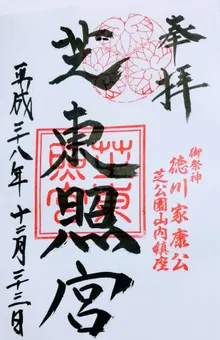 奉拝
御祭神
徳川家康公
芝公園山内鎮座
芝東照宮
芝東
照宮
平成二八年十二月二十三日